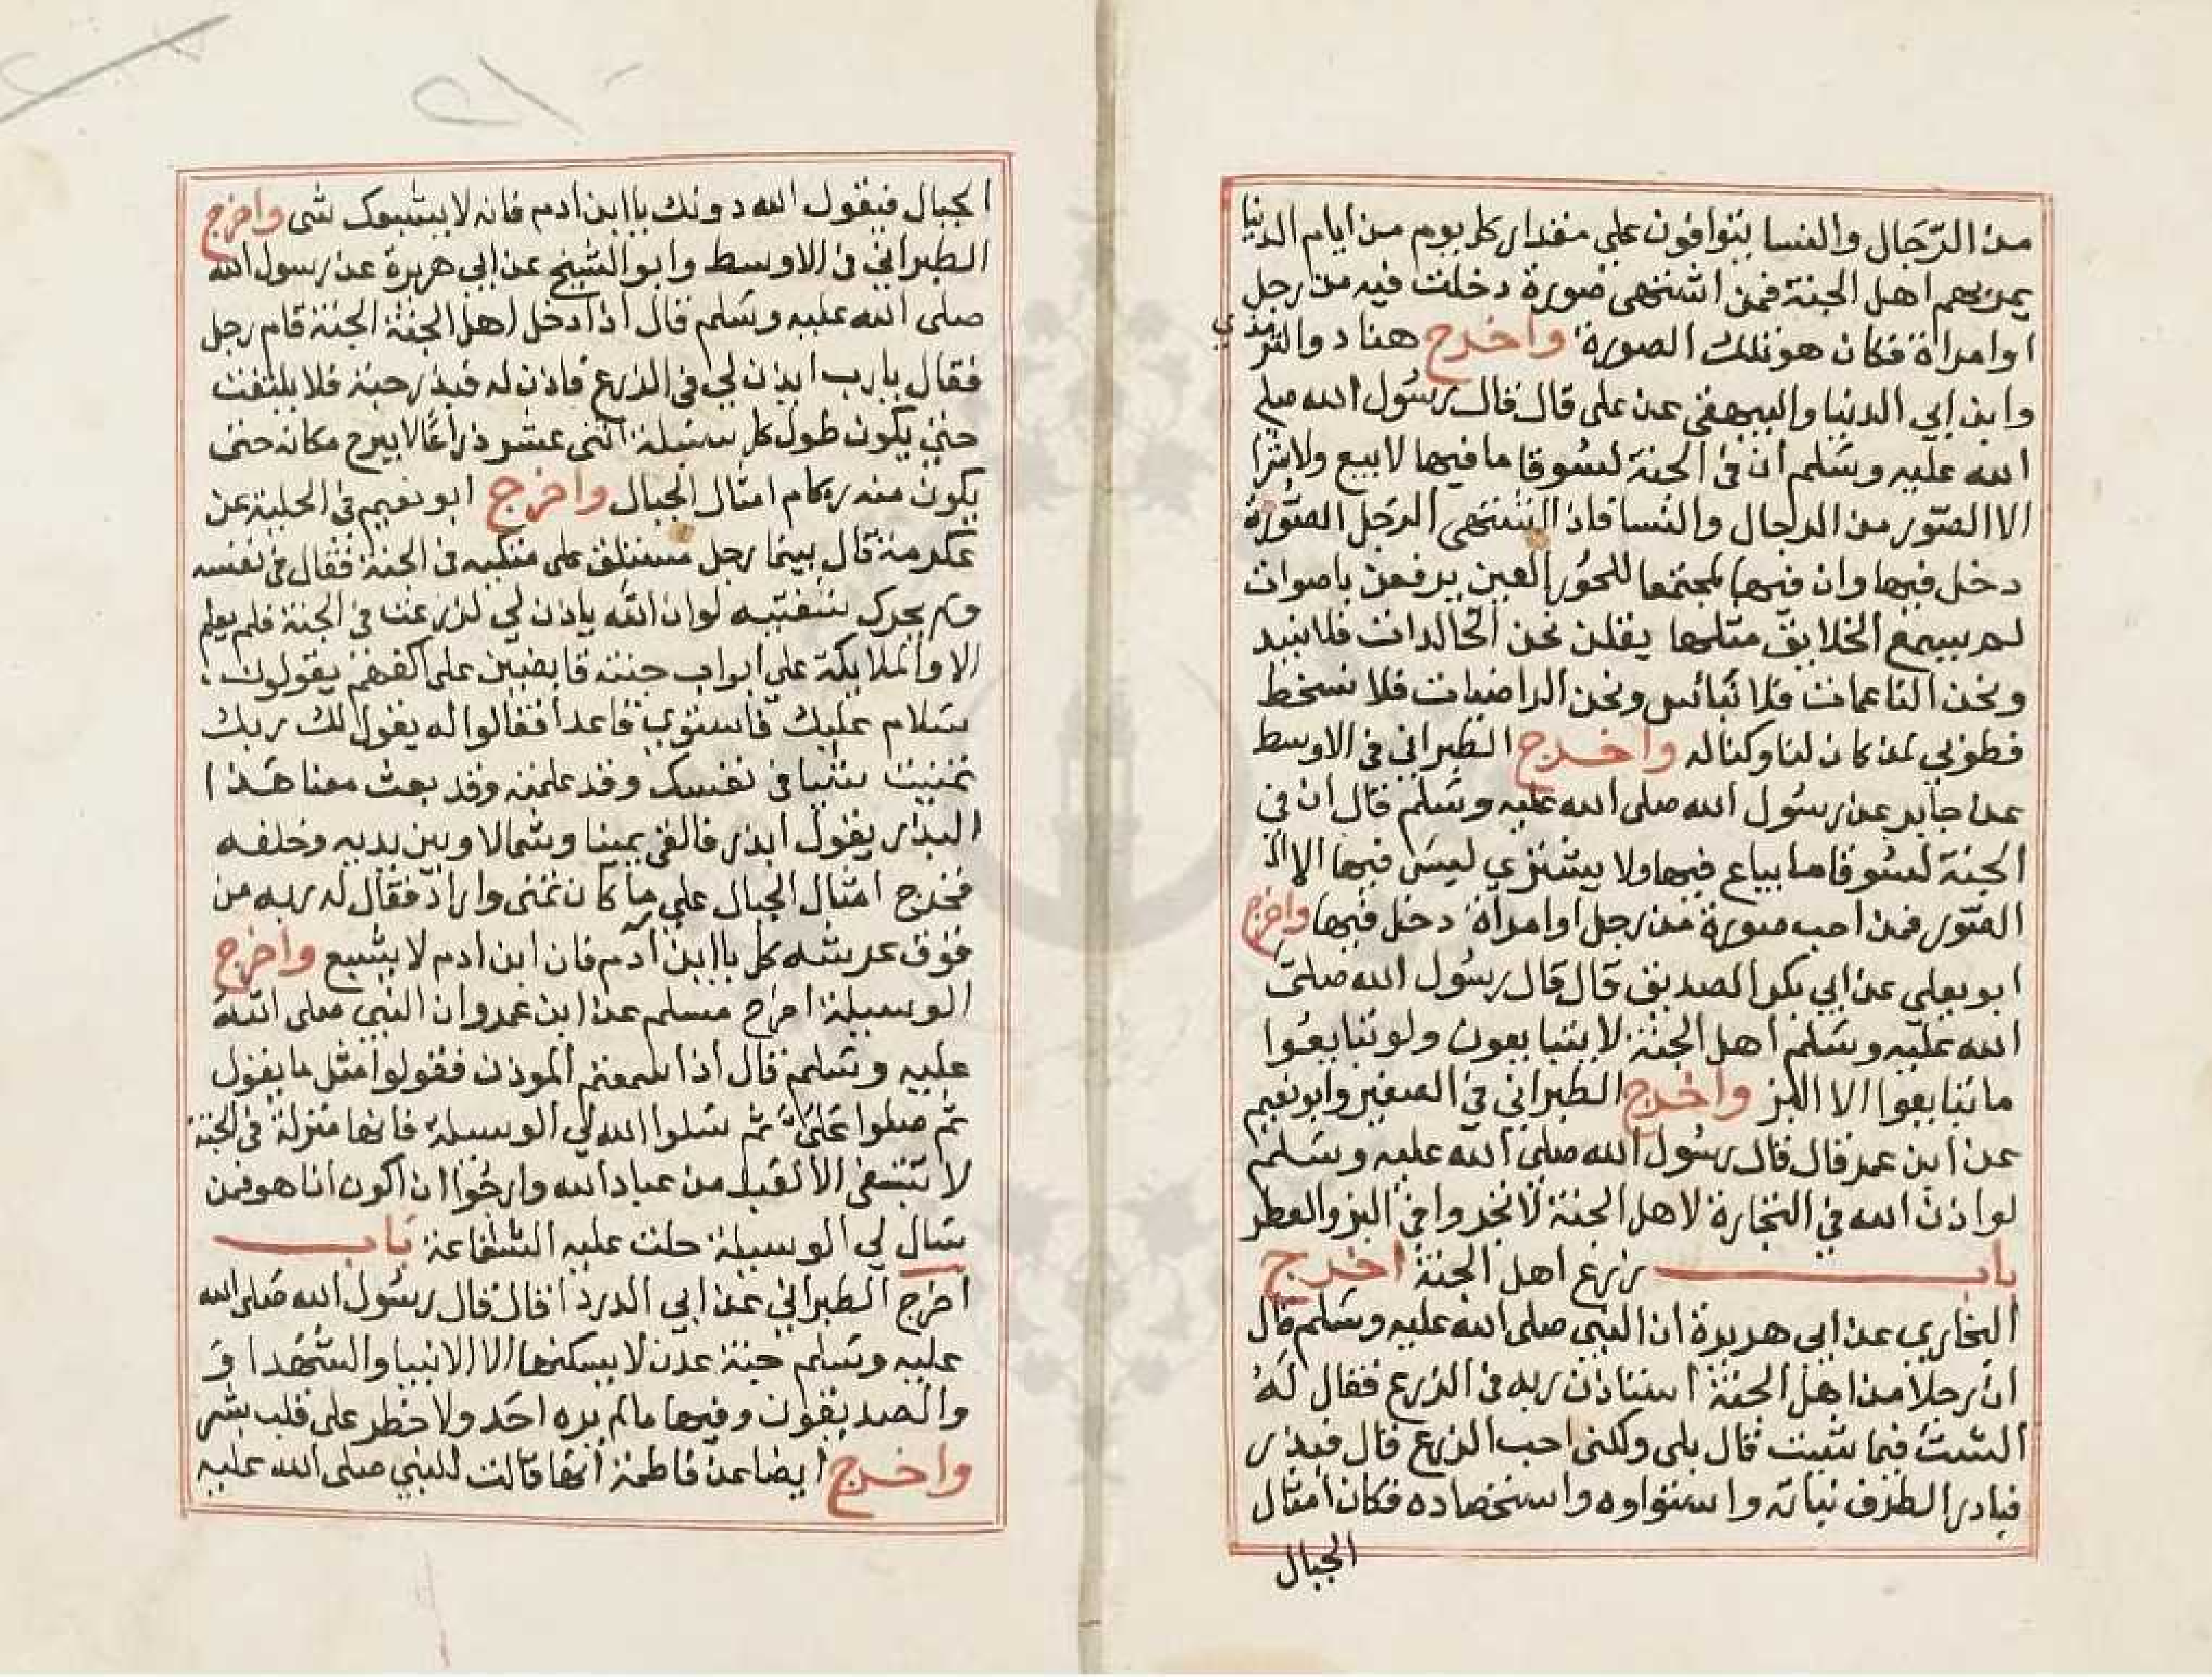 من الرّجال والنسا يتوافون على مقدار كل يوم من ايام الدنيا
يمر بهم اهل الجنة فمن اشتهى صورة دخلت فيه من رجل
او امراة فكان هو تلك الصورة واخرج هناد والترمذي
وابن ابي الدنيا والبيهقي عن على قال قال رسول الله صلى
الله عليه وسلم ان في الجنة لسوقا ما فيها لا بيع ولا شرا
الا الصّور من الرجال والنسا فاذا اشتهى الرجل الصّورة
دخل فيها وان فيها لمجتمعا للحور العين يرفعن باصوات
لم يسمع الخلايق مثلها يقلن نحن الخالدات فلا نبيد
ونحن الناعمات فلا نبائس ونحن الراضيات فلا نسخط
فطوبي لمن كان لنا وكنا له واخرج الطبراني في الاوسط
عن جابر عن رسول الله صلى الله عليه وسلم قال ان في
الجنة لسوقا ما يباع فيها ولا يشترى ليس فيها الا
الصّور فمن احب صورة من رجل او امراة دخل فيها واخرج
ابو يعلى عن ابي بكر الصديق قال قال رسول الله صلى
الله عليه وسلم اهل الجنة لا يتبايعون ولو تبايعوا
ما تبايعوا الا البز واخرج الطبراني في الصغير وابو نعيم
عن ابن عمر قال قال رسول الله صلى الله عليه وسلم
لو اذن الله في التجارة لاهل الجنة لاتجروا في البز والعطر
باب زرع اهل الجنة اخرج
البخاري عن ابى هريرة ان النبي صلى الله عليه وسلم قال
ان رجلا من اهل الجنة استاذن ربه في الزرع فقال له
الست فيما شيت قال بلى ولكني احب الزرع قال فبذر
فبادر الطرف نباته واستواوه واستحصاده فكان امثال
الجبال
الجبال فيقول الله دونك يا ابن ادم فانه لا يشبعك شى واخرج
الطبراني في الاوسط وابو الشيخ عن ابي هريرة عن رسول الله
صلى الله عليه وسلم قال اذا دخل اهل الجنة الجنة قام رجل
فقال يا رب ايذن لي في الزرع فاذن له فبذر حبة فلا يلتفت
حتى يكون طول كل سنبلة اثنى عشر ذراعا لا يبرح مكانه حتى
يكون منه ركام امثال الجبال واخرج ابو نعيم في الحلية عن
عكرمة قال بينما رجل مستلق على منكبيه في الجنة فقال في نفسه
ولم يحرك شفتيه لو ان الله ياذن لي لزرعت في الجنة فلم يعلم
الا والملايكة على ابواب جنته قابضين على اكفهم يقولون
سلام عليك فاستوى قاعدا فقالوا له يقول لك ربك
تمنيت شيا في نفسك وقد علمته وقد بعث معنا هذا
البذر يقول ابذر فالقى يمينا وشمالا وبين يديه وخلفه
فخرج امثال الجبال على ما كان تمنى واراد فقال له ربه من
فوق عرشه كل يا ابن آدم فان ابن ادم لا يشبع واخرج
الوسيلة اخرج مسلم عن ابن عمرو ان النبي صلى الله
عليه وسلم قال اذا سمعتم الموذن فقولوا مثل ما يقول
ثم صلوا علىّ ثم سلوا الله لي الوسيلة فانها منزلة في الجنة
لا تنبغى الا لعبد من عباد الله وارجوا ان اكون انا هو فمن
سال لي الوسيلة حلت عليه الشفاعة باب
اخرج الطبراني عن ابي الدردا قال قال رسول الله صلى الله
عليه وسلم جنة عدن لا يسكنها الا الانبيا والشهدا و
والصديقون وفيها ما لم يره احد ولا خطر على قلب بشر
واخرج ايضا عن فاطمة انها قالت للنبي صلى الله عليه